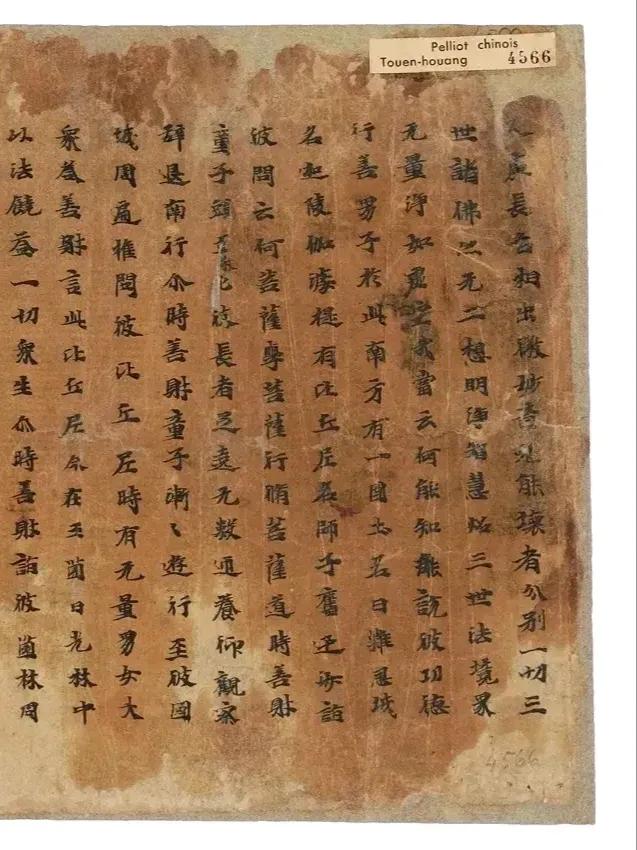 長舌相出微妙音 能壞者分別一切三
世諸佛出无二想明淨智慧炤三世法境界
无量淨如虛空我當云何能知能說彼功德
行善男子於此南方有一國土名曰難忍城
名迦陵伽婆提有比丘尼名師子奮迅汝詣
彼問云何菩薩學菩薩行脩菩薩道時善財
童子頭 礼彼長者足遶无數迊瞻仰觀察
辞退南行尒時善財童子漸〻遊行至彼國
城周遍推問彼比丘尼時有无量男女大
眾為善財言此比丘尼今在王薗日光林中
以法饒益一切眾生尒時善財詣彼薗林周
Pelliot chinois
Touen-houang 4566
4566